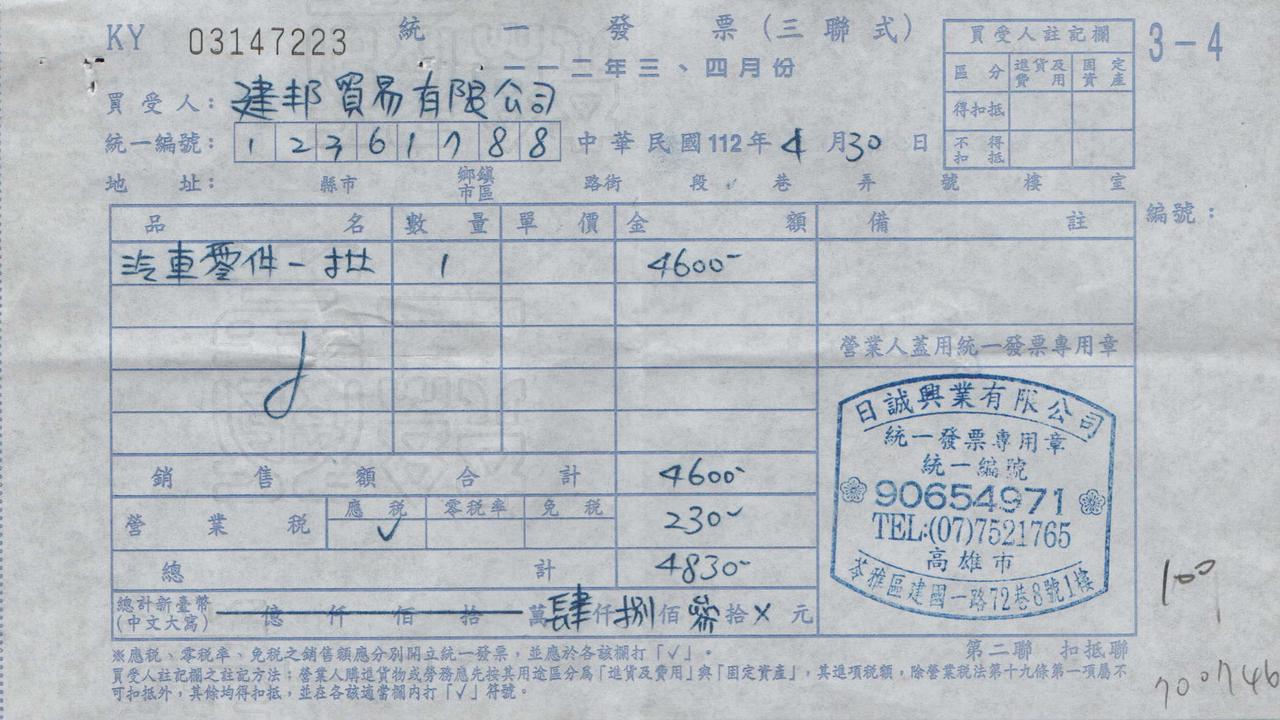 KY 03147223 統一發票(三聯式) 3-4
一一二年三、四月份
買受人註記欄
區分 進貨及費用 固定資產
得扣抵
不得扣抵
買受人: 建邦貿易有限公司
統一編號: 12361788 中華民國112年4月30日
地址: 縣市 鄉鎮市區 路街 段 巷 弄 號 樓 室
品名 數量 單價 金額 備註 編號:
汽車零件一批 1 4600-
營業人蓋用統一發票專用章
銷售額合計 4600-
營業稅 應稅 零稅率 免稅 230-
✓
總計 4830-
總計新臺幣(中文大寫) 億仟佰拾萬肆仟捌佰參拾X元
日誠興業有限公司
統一發票專用章
統一編號
90654971
TEL:(07)7521765
高雄市
苓雅區建國一路72巷8號1樓
100
第二聯 扣抵聯
※應稅、零稅率、免稅之銷售額應分別開立統一發票,並應於各該欄打「✓」。
買受人註記欄之註記方法:營業人購進貨物或勞務應先按其用途區分為「進貨及費用」與「固定資產」,其進項稅額,除營業稅法第十九條第一項屬不
可扣抵外,其餘均得扣抵,並在各該適當欄內打「✓」符號。
700746